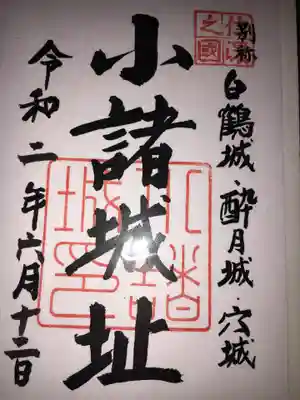 別称 白鶴城・酔月城・穴城
信濃之國
小諸城址
小諸城印
令和二年六月十二日